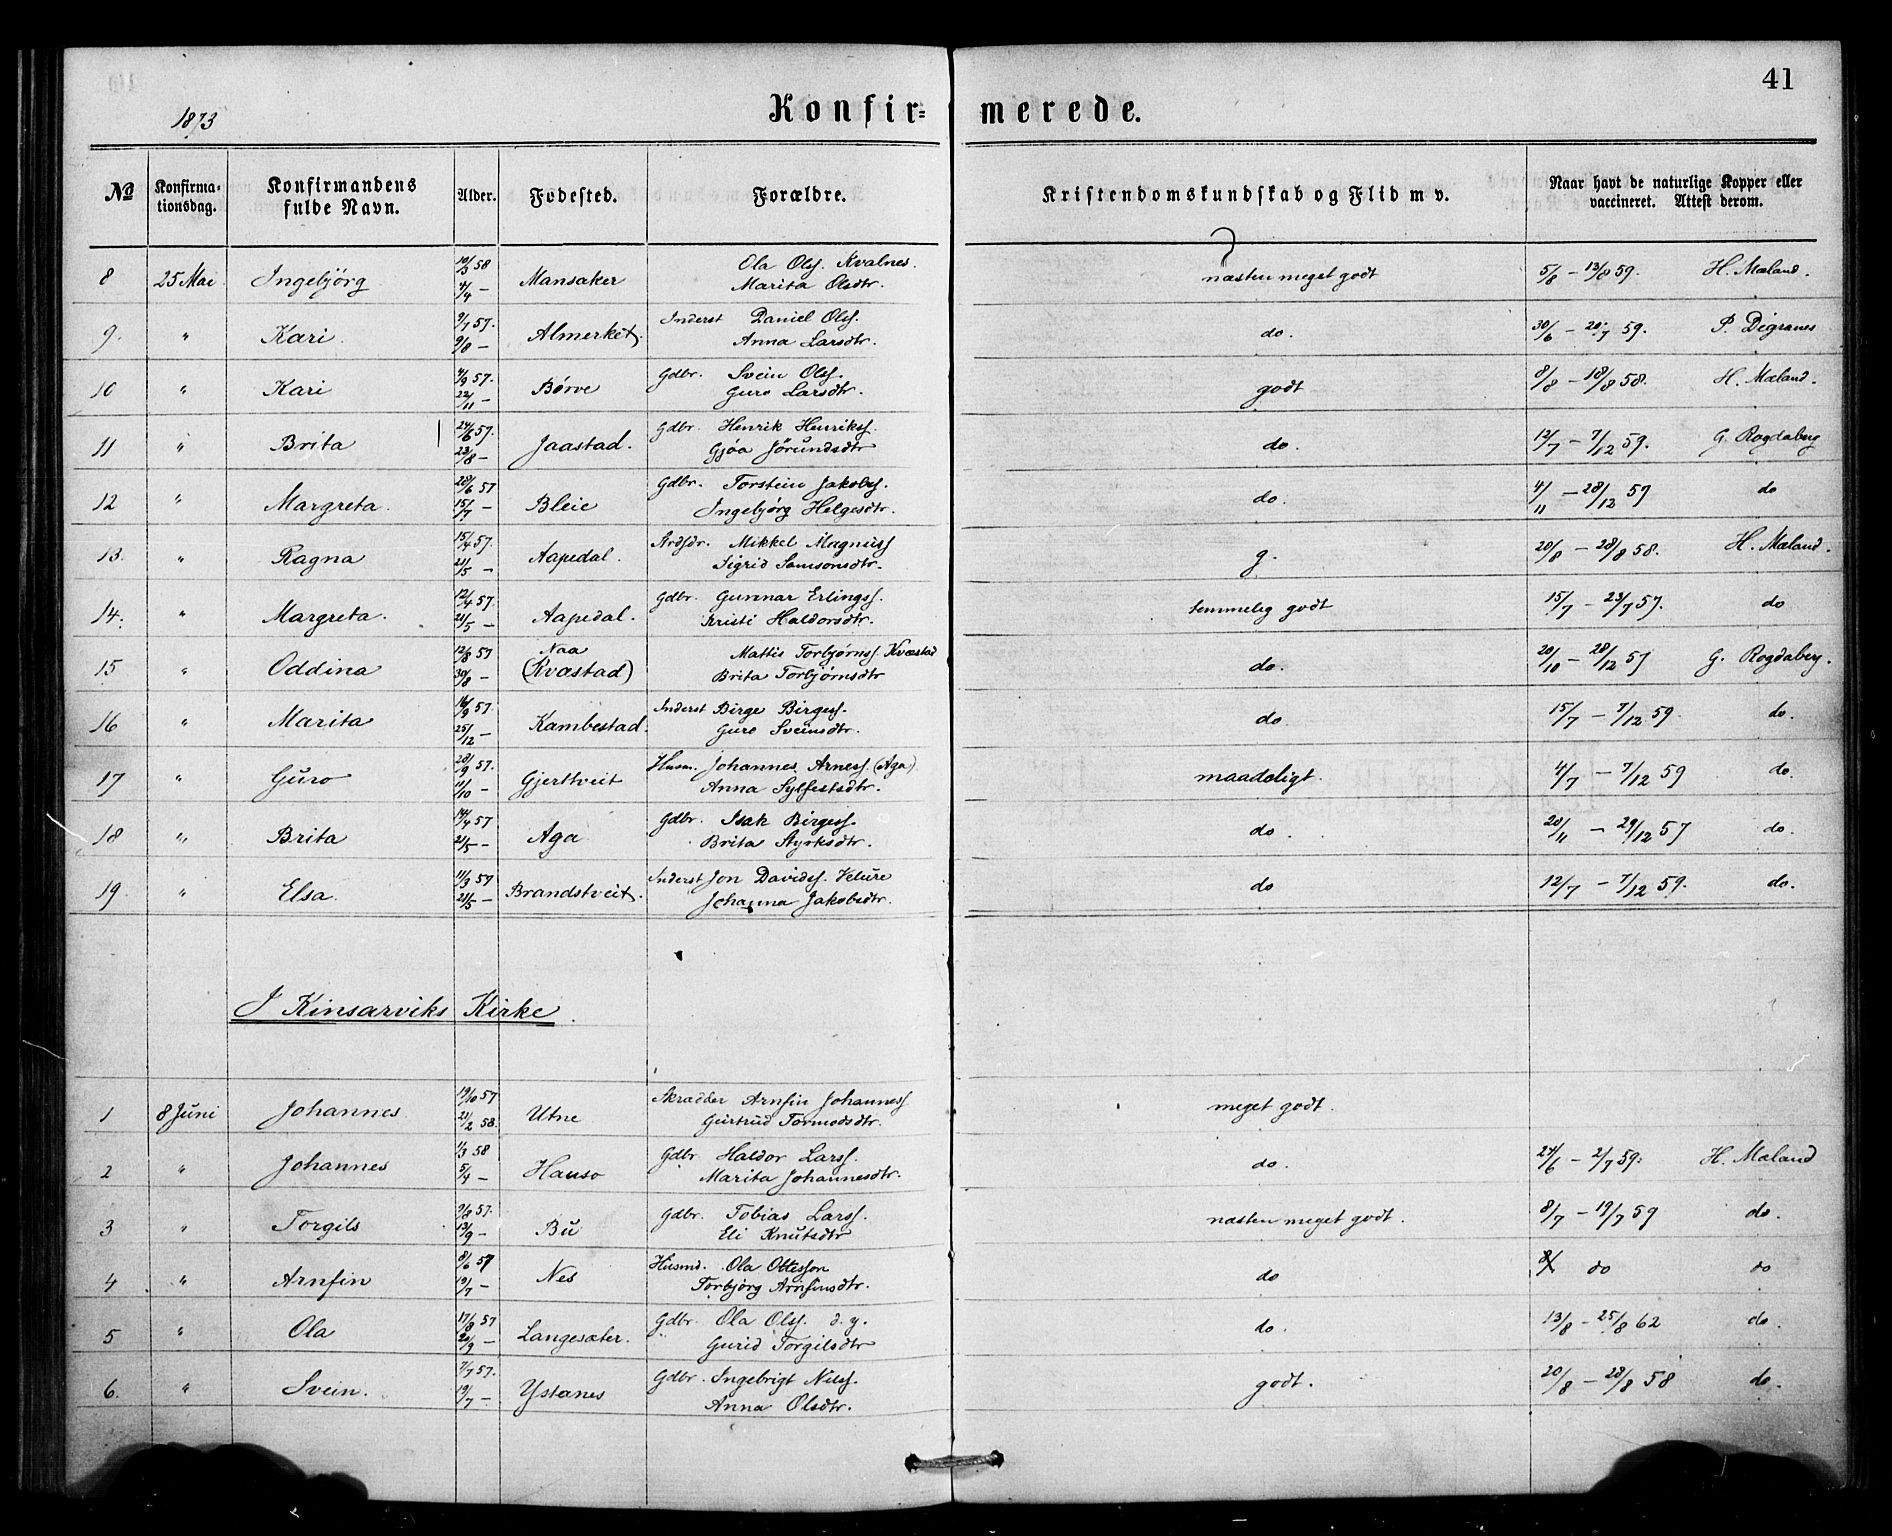 41
1873
Konfir= merede.
No Konfirma-tionsdag. Konfirmandens fulde Navn. Alder. Fodested. Forældre. Kristendomskundskab og Flid m v. Naar havt de naturlige Kopper eller vaccineret. Attest derom.
8 25 Mai Ingebjörg 10/3 58 Mansaker Ola Olss. Kvalnes. næsten meget godt 5/8 – 13/8 59. H. Mæland.
4/4 – Marita Olsdtr.
9. " Kari. 9/7 57. Almerket. Inderst Daniel Olss. do. 30/6 – 20/7 59. P. Digranes
9/8 – Anna Larsdtr.
10 " Kari 4/9 57. Børve Gdbr. Svein Olss. godt 8/8 – 18/8 58. H. Mæland.
22/11 – Guro Larsdtr.
11 " Brita 24/6 57. Jaastad. Gdbr. Henrik Henrikss. do. 12/7 – 7/12 59. G. Rogdaberg
23/8 – Gjøa Jörundsdtr
12 " Margreta. 28/6 57 Bleie Gdbr. Torstein Jakobs. do. 4/11 – 28/12 57 do
15/7 – Ingebjørg Helgesdtr.
13. " Ragna 15/4 57. Aapedal. Mikkel Magnuss g. 20/8 – 28/8 58. H. Mæland.
21/5 – Sigrid Samsonsdtr.
14. " Margreta. 12/4 57. Aapedal. Gdbr. Gunnar Erlingss. temmelig godt 15/7 – 23/7 57. do
21/5 – Kristi Haldorsdtr.
15 " Oddina 12/8 57 Naa (Kvæstad) Mattis Torbjørns. Kvæstad do. 20/10 – 28/12 57 G. Rogdaberg.
30/8 – Brita Torbjørnsdtr
16 " Marita 16/9 57. Kambestad. Inderst Birge Birgess. do. 15/7 – 7/12 59. do.
25/12 – Guro Sveinsdtr.
17 " Guro 20/9 57. Gjerttveit Husm. Johannes Arness. (Aga) maadeligt. 4/7 – 7/12 59 do.
11/10 – Anna Sylfestsdtr.
18 " Brita 14/4 57 Aga Gdbr. Isak Birgess. do. 20/11 – 29/12 57 do.
21/5 – Brita Styrksdtr.
19. " Elsa. 11/3 57 Brandstveit. Inderst Jon Davidss. Velure do 12/7 – 7/12 59. do.
21/5 – Johanna Jakobsdtr.
I Kinsarviks Kirke.
1 8 Juni Johannes 19/10 57 Utne Skrædder Arnfin Johanness meget godt.
21/2 58. Gurtrud Tormodsdtr.
2 " Johannes 11/3 58 Hauso Gdbr. Haldor Larss. do. 24/6 – 2/7 59. H. Mæland
5/4 – Marita Johannesdtr.
3 " Torgils 9/8 57. Bu Gdbr. Tobias Larss. næsten meget godt. 8/7 – 19/7 59 do.
13/9 – Eli Knutsdtr
4 " Arnfin 8/6 57 Nes Husmd. Ola Ottesson do do do
19/7 – Torbjörg Arnfinsdtr.
5 " Ola 17/8 57 Langesæter. Gdbr. Ola Olss. d. y. do. 13/8 – 25/8 62 do.
20/9 – Gurid Torgilsdtr
6. " Svein. 7/7 57. Ystanes Gdbr. Ingebrigt Nilss. godt. 20/8 – 28/8 58 do.
19/7 – Anna Olsdtr.